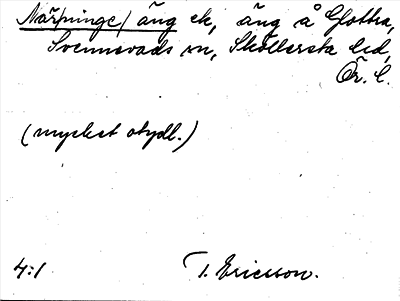 När/pinge/ äng ek, äng å Glottra,
Svennevads sn, Sköllersta hd,
Ör. l.
(mycket otydl.)
4:1 T. Ericsson.